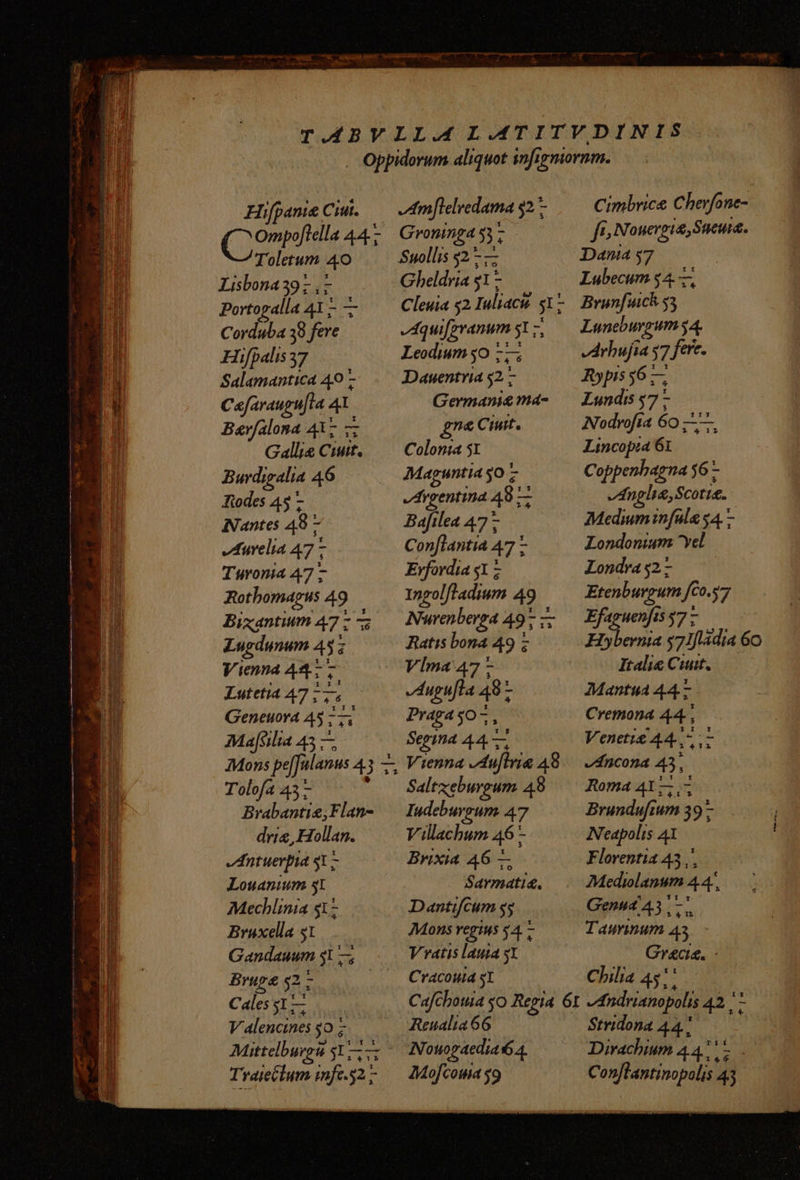 TABVLLA LATITVDINIS
Oppidorum aliquot insigniorum.
Hispaniæ Ciui.
COmpostella 44
Toletum 40
Lisbona 39
Portogalla 41
Corduba 38 fere
Hispalis 37
Salamantica 40
Cæsaraugusta 41
Barsalona 41
Galliæ Ciuit.
Burdigalia 46
Rodes 45
Nantes 48
Aurelia 47
Turonia 47
Rothomagus 49
Bizantium 47
Lugdunum 45
Vienna 44
Lutetia 47
Geneuora 45
Massilia 43
Mons pessulanus 43
Tolosa 43
Brabantiæ, Flan-
driæ, Hollan.
Antuerpia 51
Louanium 51
Mechlinia 51
Bruxella 51
Gandauum 51
Brugæ 52
Cales 51
Valencines 50
Mittelburgū 51
Traiectum infe. 52
Amstelredama 52
Groninga 53
Suollis 52
Gheldria 51
Cleuia 52 Iuliacū 51
Aquisgranum 51
Leodium 50
Dauentria 52
Germaniæ ma-
gnæ Ciuit.
Colonia 51
Maguntia 50
Argentina 48
Basilea 47
Constantia 47
Erfordia 51
Ingolstadium 49
Nurenberga 49
Ratisbona 49
Vlma 47
Augusta 48
Praga 50
Segina 44
Vienna Austriæ 48
Saltzeburgum 48
Iudeburgum 47
Villachum 46
Brixia 46
Sarmatiæ.
Dantiscum 55
Mons regius 54
Vratislauia 51
Cracouia 51
Caschouia 50 Regia 61
Reualia 66
Nouogaedia 64
Moscouia 59
Cimbricæ Chersone-
si, Nouergiæ, Sueuiæ.
Dania 57
Lubecum 54
Brunsuich 53
Luneburgum 54
Arhusia 57 fere.
Rypis 56
Lundis 57
Nodrosia 60
Lincopia 61
Coppenhagna 56
Angliæ, Scotiæ.
Medium insulæ 54
Londonium vel
Londra 52
Etenburgum sco. 57
Efaguensis 57
Hybernia 57 Isladia 60
Italiæ Ciuit.
Mantua 44
Cremona 44
Venetiæ 44
Ancona 43
Roma 41
Brundusium 39
Neapolis 41
Florentia 43
Mediolanum 44
Genua 43
Taurinum 43
Græciæ.
Chilia 45
Andrianopolis 42
Stridona 44
Dirachium 44
Constantinopolis 43